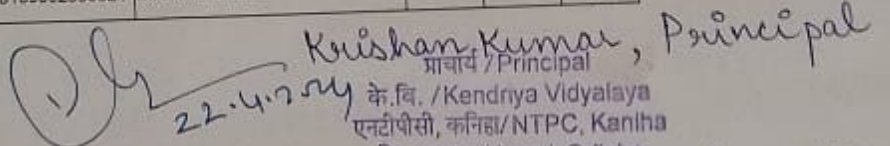 Krishan Kumar, Principal
प्राचार्य / Principal
22.4.2024
के.वि. / Kendriya Vidyalaya
एनटीपीसी, कनिहा / NTPC, Kaniha